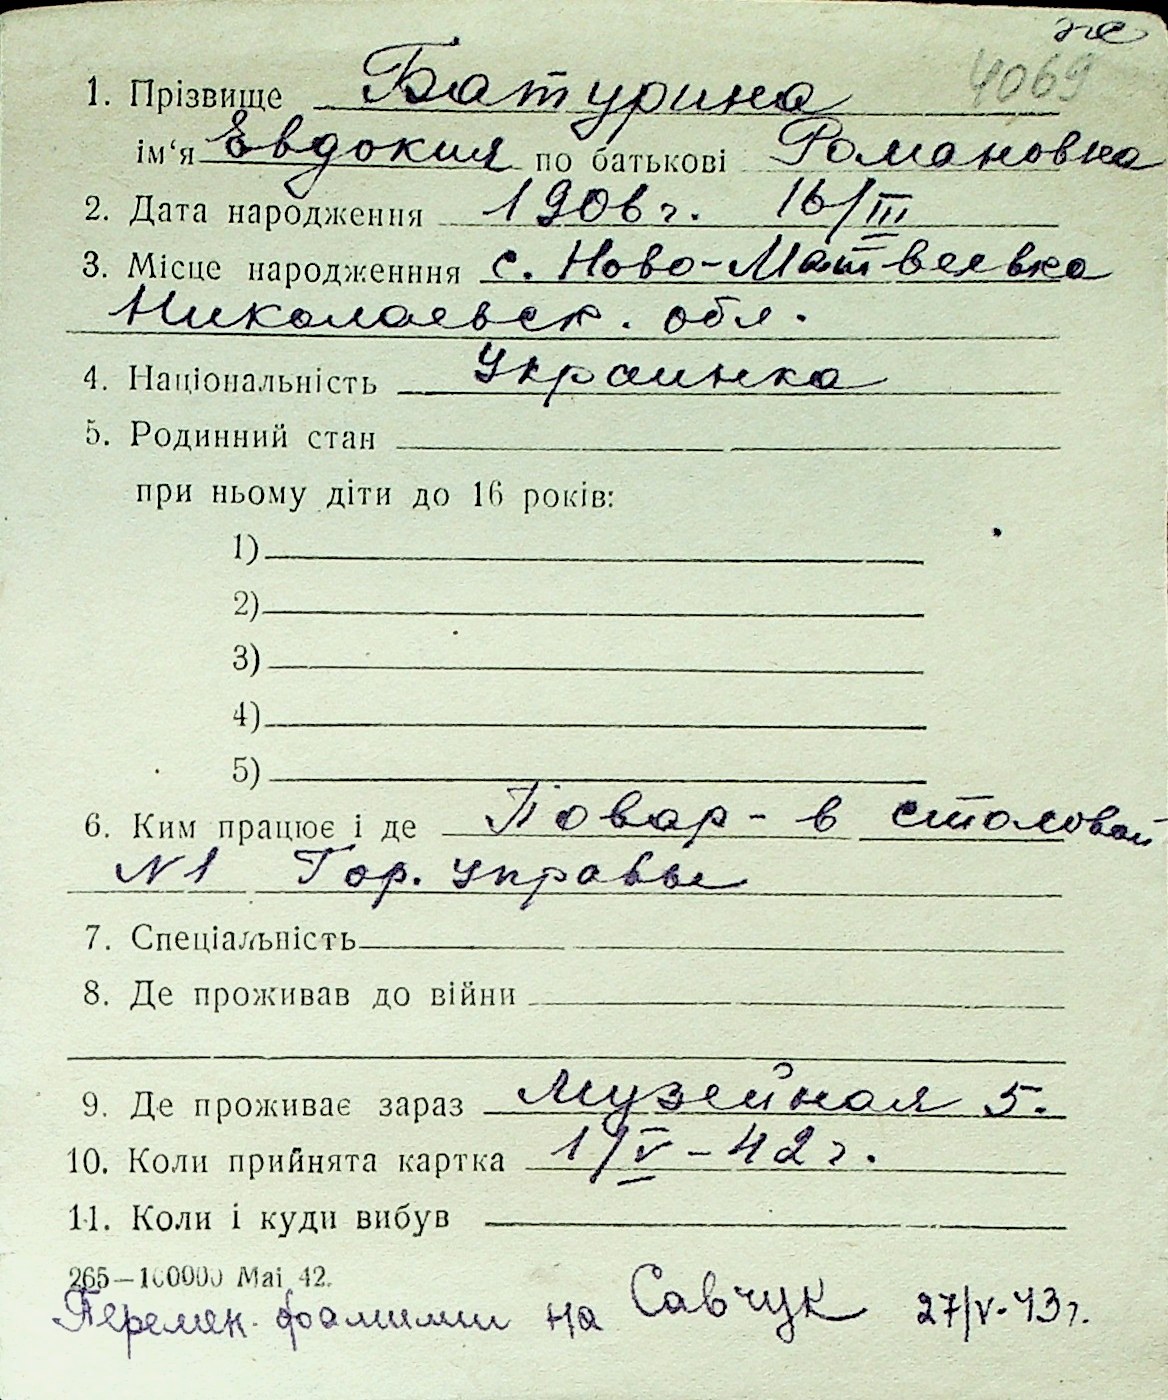 же
4069
1. Прізвище Батурина
ім‘я Евдокия по батькові Романовна
2. Дата народження 1906 г. 16/III
3. Місце народженння с. Ново-Матвеевка
Николаевск. обл.
4. Національність Украинка
5. Родинний стан
при ньому діти до 16 років:
1)
2)
3)
4)
5)
6. Ким працює і де Повар - в столовой
N1 Гор. управы
7. Спеціальність
8. Де проживав до війни
9. Де проживає зараз Музейная 5.
10. Коли прийнята картка 1/V - 42 г.
11. Коли і куди вибув
265—100000 Mai 42.
Перемен. фамилии на Савчук 27/V-43 г.